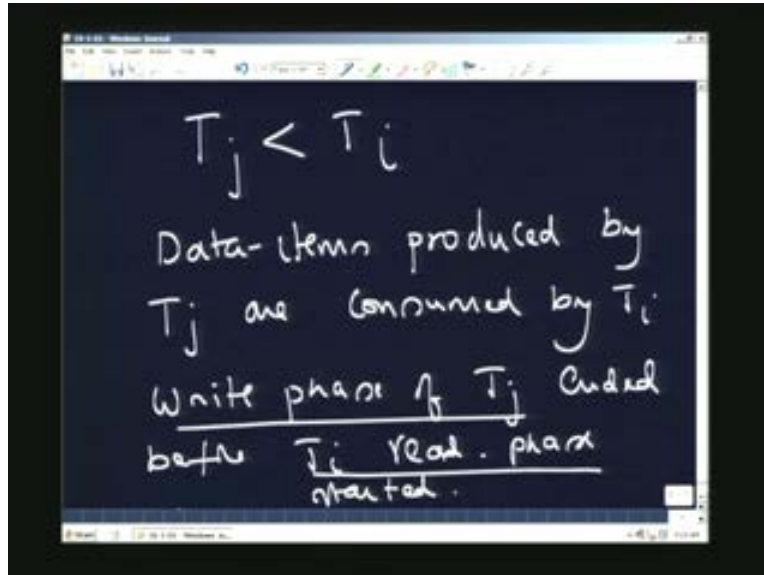 Tj < Ti
Data-items produced by
Tj are consumed by Ti
Write phase of Tj ended
before Ti read. phase
started.